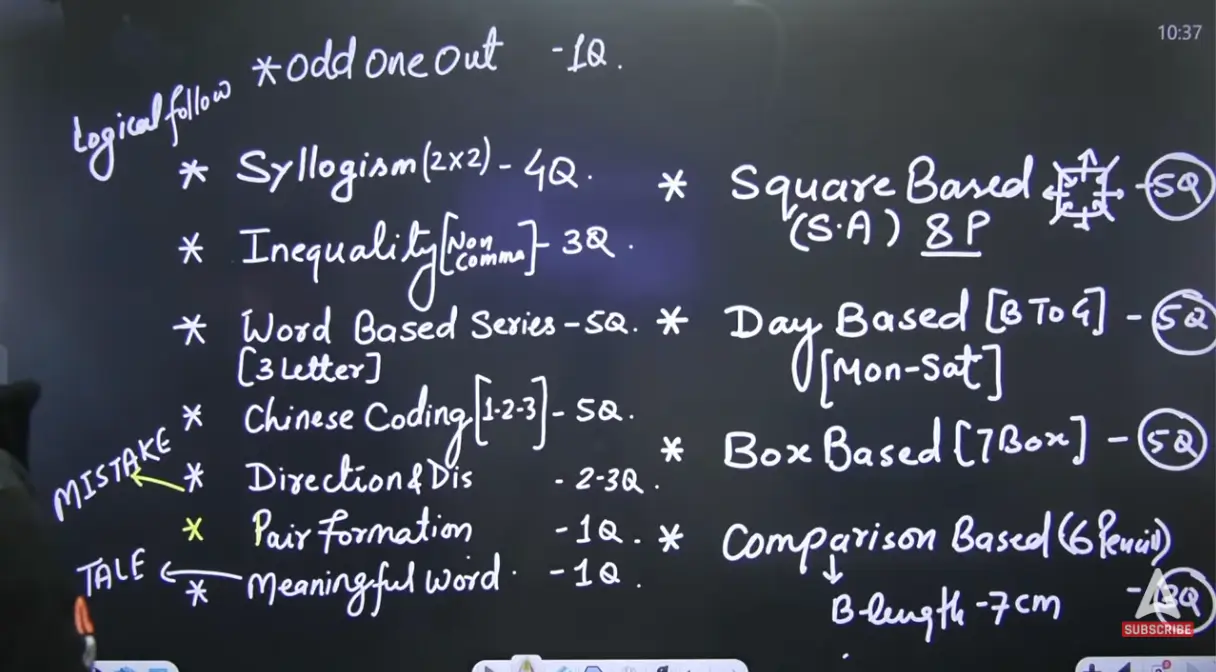 10:37
* odd one out - 1Q.
Logical follow
* Syllogism (2x2) - 4Q.
* Inequality [Non Comma] - 3Q.
* Word Based Series - 5Q.
[3 Letter]
* Chinese Coding [1-2-3] - 5Q.
MISTAKE
* Direction & Dis - 2-3Q.
* Pair formation - 1Q.
TALE
* Meaningful word. - 1Q.
* Square Based - 5Q
(S.A) 8P
* Day Based [B To G] - 5Q
[Mon-Sat]
* Box Based [7 Box] - 5Q
* Comparison Based (6 Pencil)
- 3Q
B-length - 7 cm
SUBSCRIBE